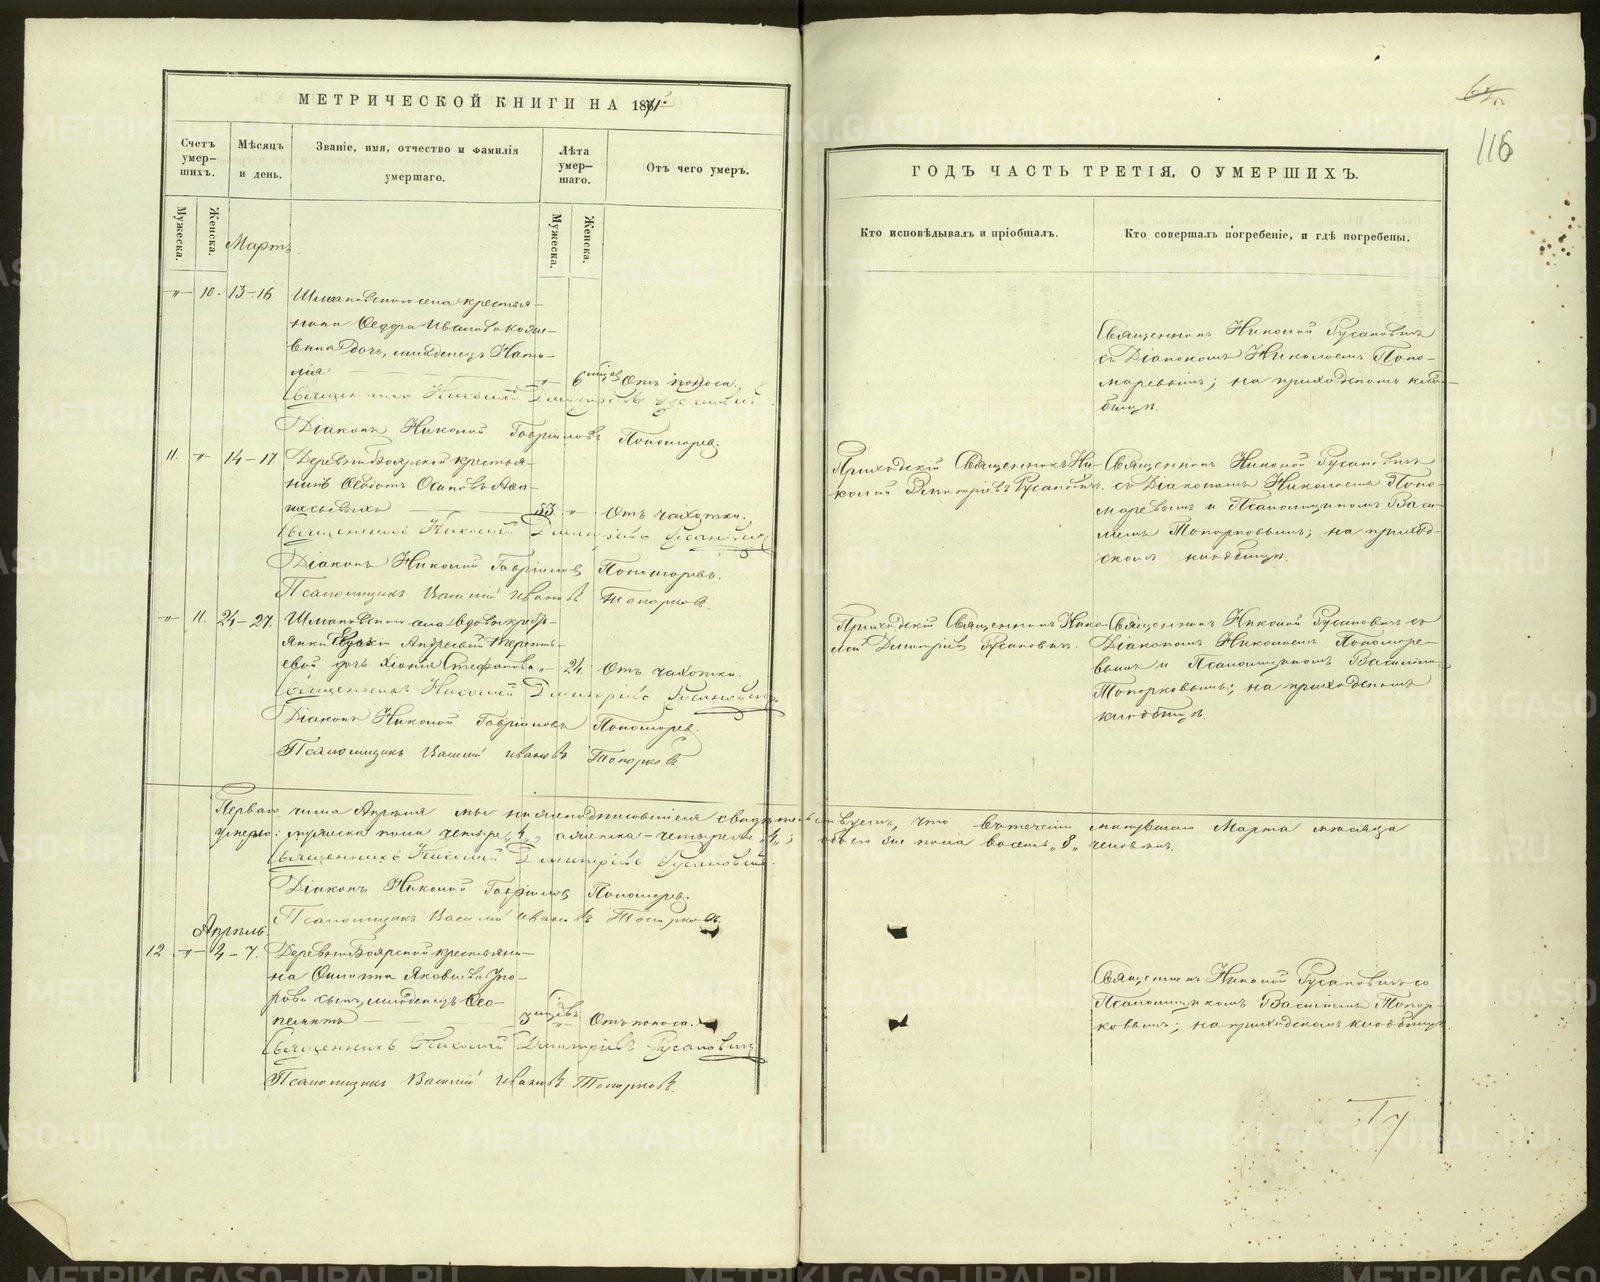 МЕТРИЧЕСКОЙ КНИГИ НА 1871.
Счетъ умер-шихъ.
Мѣсяцъ и день.
Званіе, имя, отчество и фамилія умершаго.
Лѣта умер-шаго.
Отъ чего умеръ.
Мужеска.
Женска.
Мужеска.
Женска.
Мартъ.
10. 13-16. Шмаковскаго села крестья-
нина Ѳедора Иванова
дочь, младенецъ Ната-
лія 6 мцев Отъ поноса.
Священникъ Николай Димитріевъ Русановичъ
Діаконъ Николай Гавріиловъ Пономарев.
11. 14-17 Деревни Боярской крестья-
нинъ Ѳедотъ Осиповъ
53 Отъ чахотки.
Священникъ Николай Димитріевъ Русановичъ
Діаконъ Николай Гавріилов Пономаревъ.
Псаломщикъ Василій Ивановъ Топорков.
11. 24-27. Шмаковскаго села вдовы
Андреевой Терентье-
вой дочь Хіонія Стефанова 24. Отъ чахотки.
Священникъ Николай Димитріевъ Русановичъ
Діаконъ Николай Гавріиловъ Пономарев.
Псаломщикъ Василій Ивановъ Топорковъ
Перваго числа Апрѣля мы нижеподписавшіеся свидѣтельствуемъ, что въ теченіи минувшаго Марта мѣсяца
умерло: мужеска пола четыре „4„, а женска - четыре „4„; обоего же пола восемь „8„ человѣкъ.
Священникъ Николай Димитріевъ Русановичъ.
Діаконъ Николай Гавріилов Пономарев.
Псаломщикъ Василій Ивановъ Топорковъ.
Апрѣль.
12 4-7. Деревни Боярской крестьяни-
на Яковлева
сынъ, младенецъ Ѳео-
пемптъ 3 мцевъ Отъ поноса.
Священникъ Николай Димитріевъ Русановичъ
Псаломщикъ Василій Ивановъ Топорковъ.
116
ГОДЪ ЧАСТЬ ТРЕТІЯ, О УМЕРШИХЪ.
Кто исповѣдывалъ и пріобщалъ.
Кто совершалъ погребеніе, и гдѣ погребены.
Священникъ Николай Русановичъ
съ Діакономъ Николаемъ Поно-
маревымъ; на приходскомъ клад-
бищѣ.
Приходскій Священникъ Ни-
колай Димитріевъ Русановичъ.
Священникъ Николай Русановичъ
съ Діакономъ Николаемъ Поно-
маревымъ и Псаломщикомъ Васи-
ліемъ Топорковымъ; на приход-
скомъ кладбищѣ.
Приходскій Священникъ Нико-
лай Димитріев Русановичъ.
Священникъ Николай Русановичъ съ
Діакономъ Николаемъ Пономаре-
вымъ и Псаломщикомъ Василіемъ
Топорковымъ; на приходскомъ
кладбищѣ.
Священникъ Николай Русановичъ со
Псаломщикомъ Василіемъ Топор-
ковымъ; на приходскомъ кладбищѣ.
METRIKI.GASO-URAL.RU